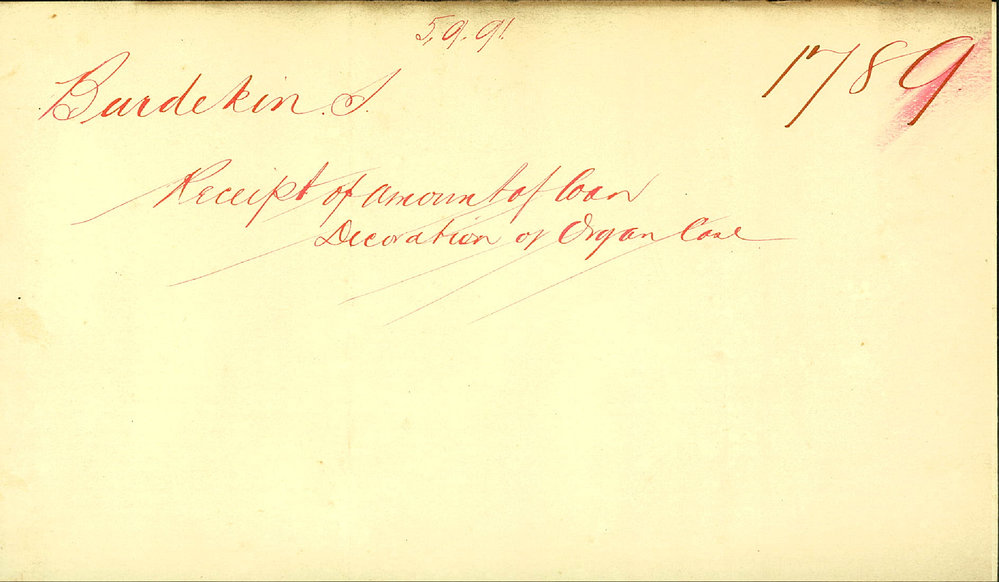 5.9.91.
1789
Burdekin. S.
Receipt of amount of loan
Decoration of Organ Case